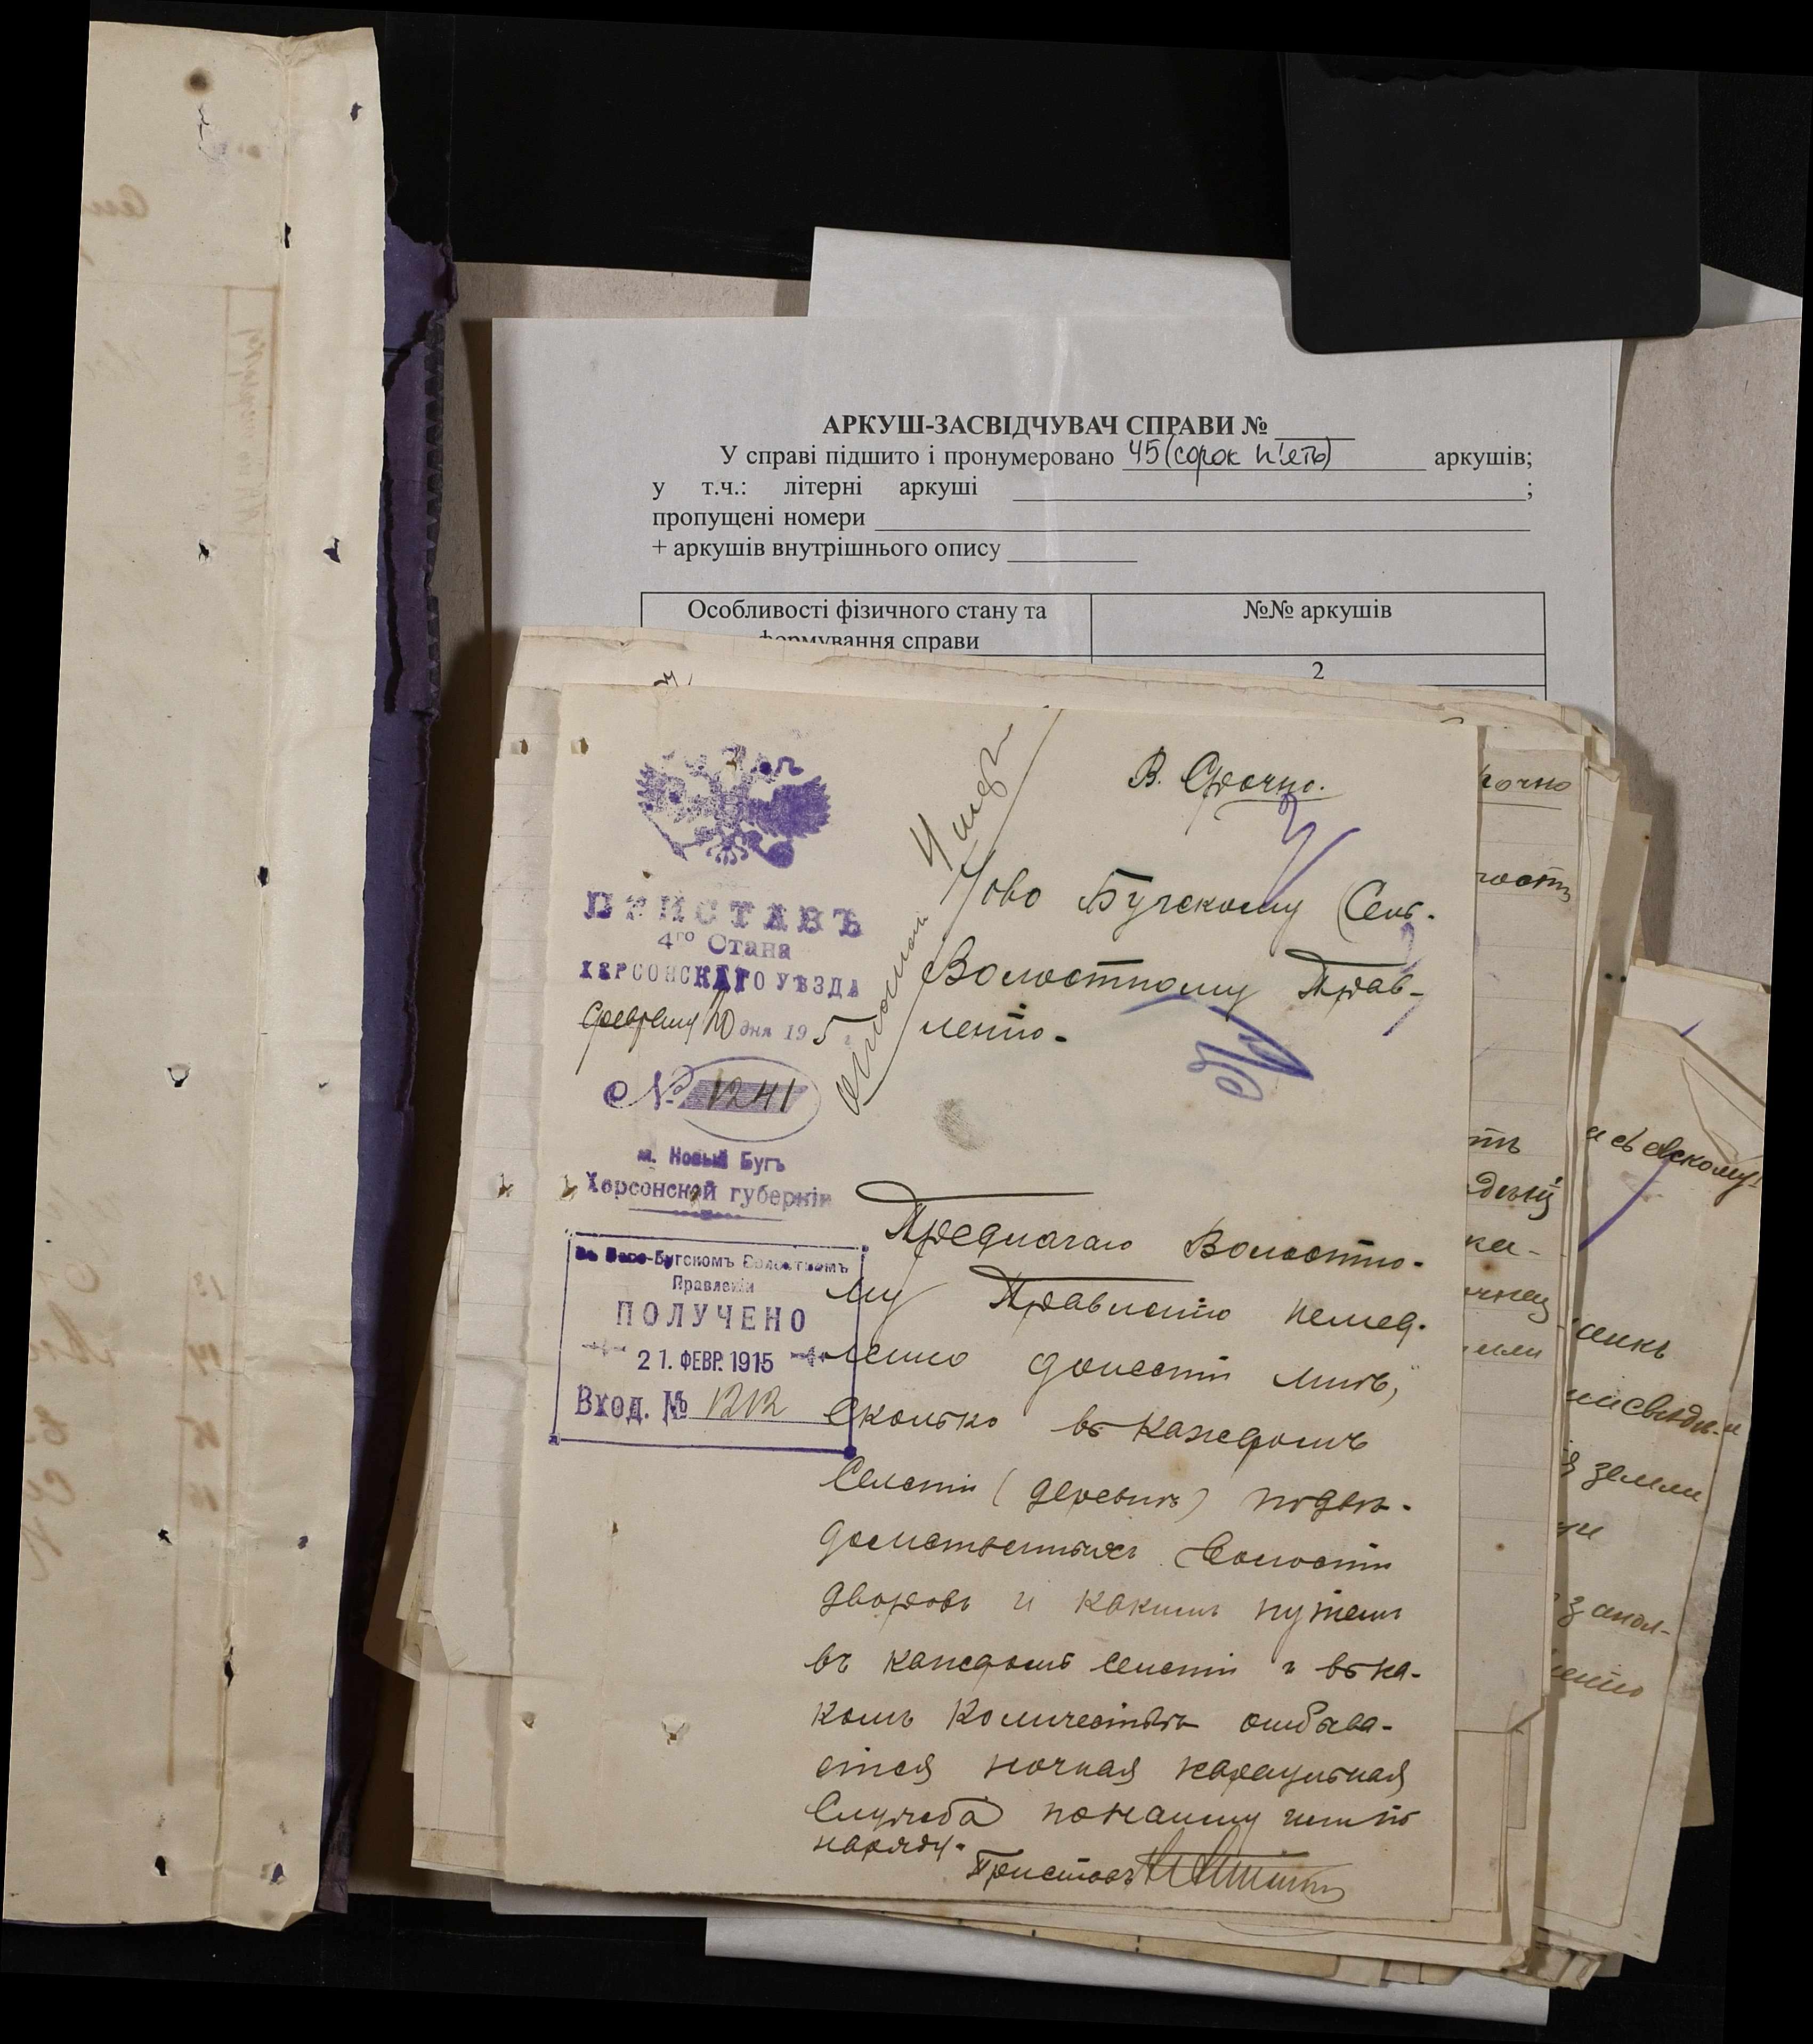 АРКУШ-ЗАСВІДЧУВАЧ СПРАВИ №
У справі підшито і пронумеровано 45 (сорок п'ять) аркушів;
у т.ч.: літерні аркуші ;
пропущені номери
+ аркушів внутрішнього опису
Особливості фізичного стану та
формування справи
№№ аркушів
2
В. Срочно.
ПРИСТАВЪ
4го Стана
ХЕРСОНСКАГО УѢЗДА
дня 1915
№ 1241
м. Новый Бугъ
Херсонской губерніи
Ново Бугскому
Волостному Прав-
ленію.
Въ Ново-Бугскомъ Волостномъ
Правленіи
ПОЛУЧЕНО
21. ФЕВР. 1915
Вход. № 1212
Предлагаю Волостно-
му Правленію немед-
ленно донести мнѣ,
сколько въ каждомъ
селеніи (деревнѣ) подвѣ-
домственныхъ волости
дворовъ и какимъ путемъ
въ каждомъ селеніи и въ ка-
комъ количествѣ отбыва-
ется ночная караульная
служба по найму или по
наряду.
Приставъ
рочно
ность
ика
землн